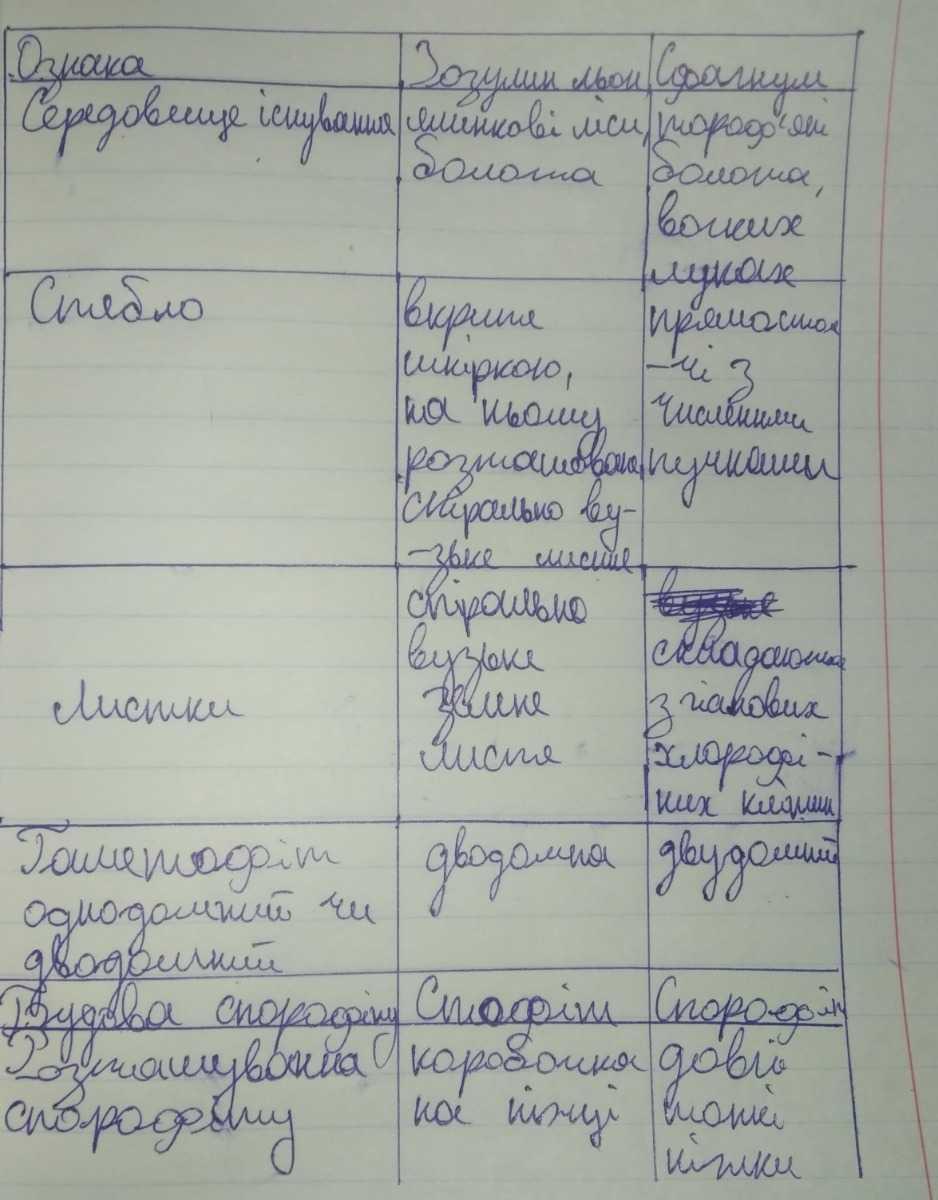 Ознака Зозулин льон Сфагнум
Середовище існування ялинкові ліси, торф'яні
болота болота,
вогких
луках
Стебло вкрите прямостоя
шкіркою, -чі з
на ньому численними
розташоване пучками
спірально ву-
-зьке листя
спірально
вузьке складаються
Листки зелене з гіалових
листя хлорофі-
них клітин
Гаметофіт дводомна двудомний
однодомний чи
дводомний
Будова спорофіту Стофіт Спорофіт
Розташування коробочка довгі
спорофіту на ніжці тонкі
ніжки